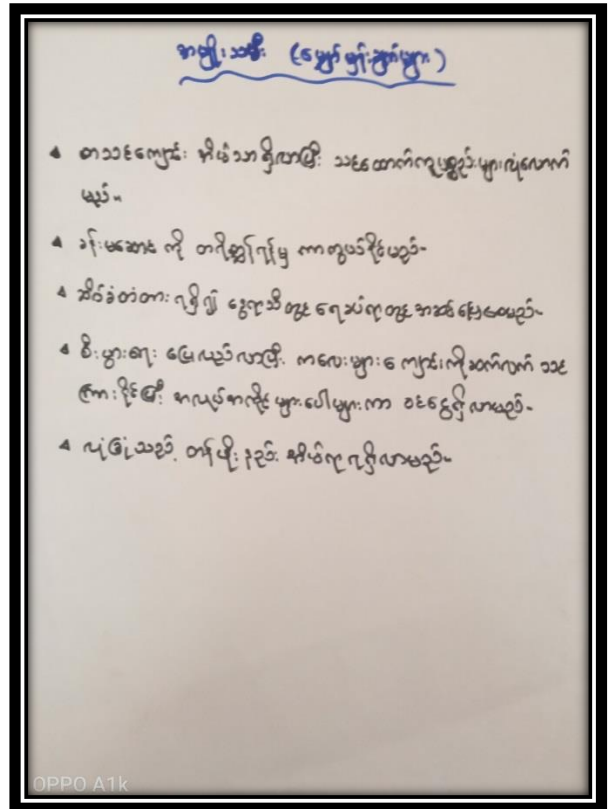 အမျိုးသမီး (မျှော်မှန်းချက်များ)
စာသင်ကျောင်း အိမ်သာရှိလာပြီး သင်ထောက်ကူပစ္စည်းများလုံလောက်
မည်။
ခန်းမဆောင် ကို ဘေးအန္တရာယ်မှ ကာကွယ်နိုင်မည်။
ဆိပ်ခံတံတား ရရှိ၍ နွေရာသီတွင် ရေငယ်ရာတွင် အဆင်ပြေမည်။
စီးပွားရေး ပြေလည်လာပြီး ကလေးများ ကျောင်းကိုဆက်လက် သင်
ကြားနိုင်ပြီး အလုပ်အကိုင်များပေါများကာ ဝင်ငွေရှိလာမည်။
လုံခြုံသည့် တန်ဖိုးနည်း အိမ်ရာ ရရှိလာမည်။
OPPO A1k